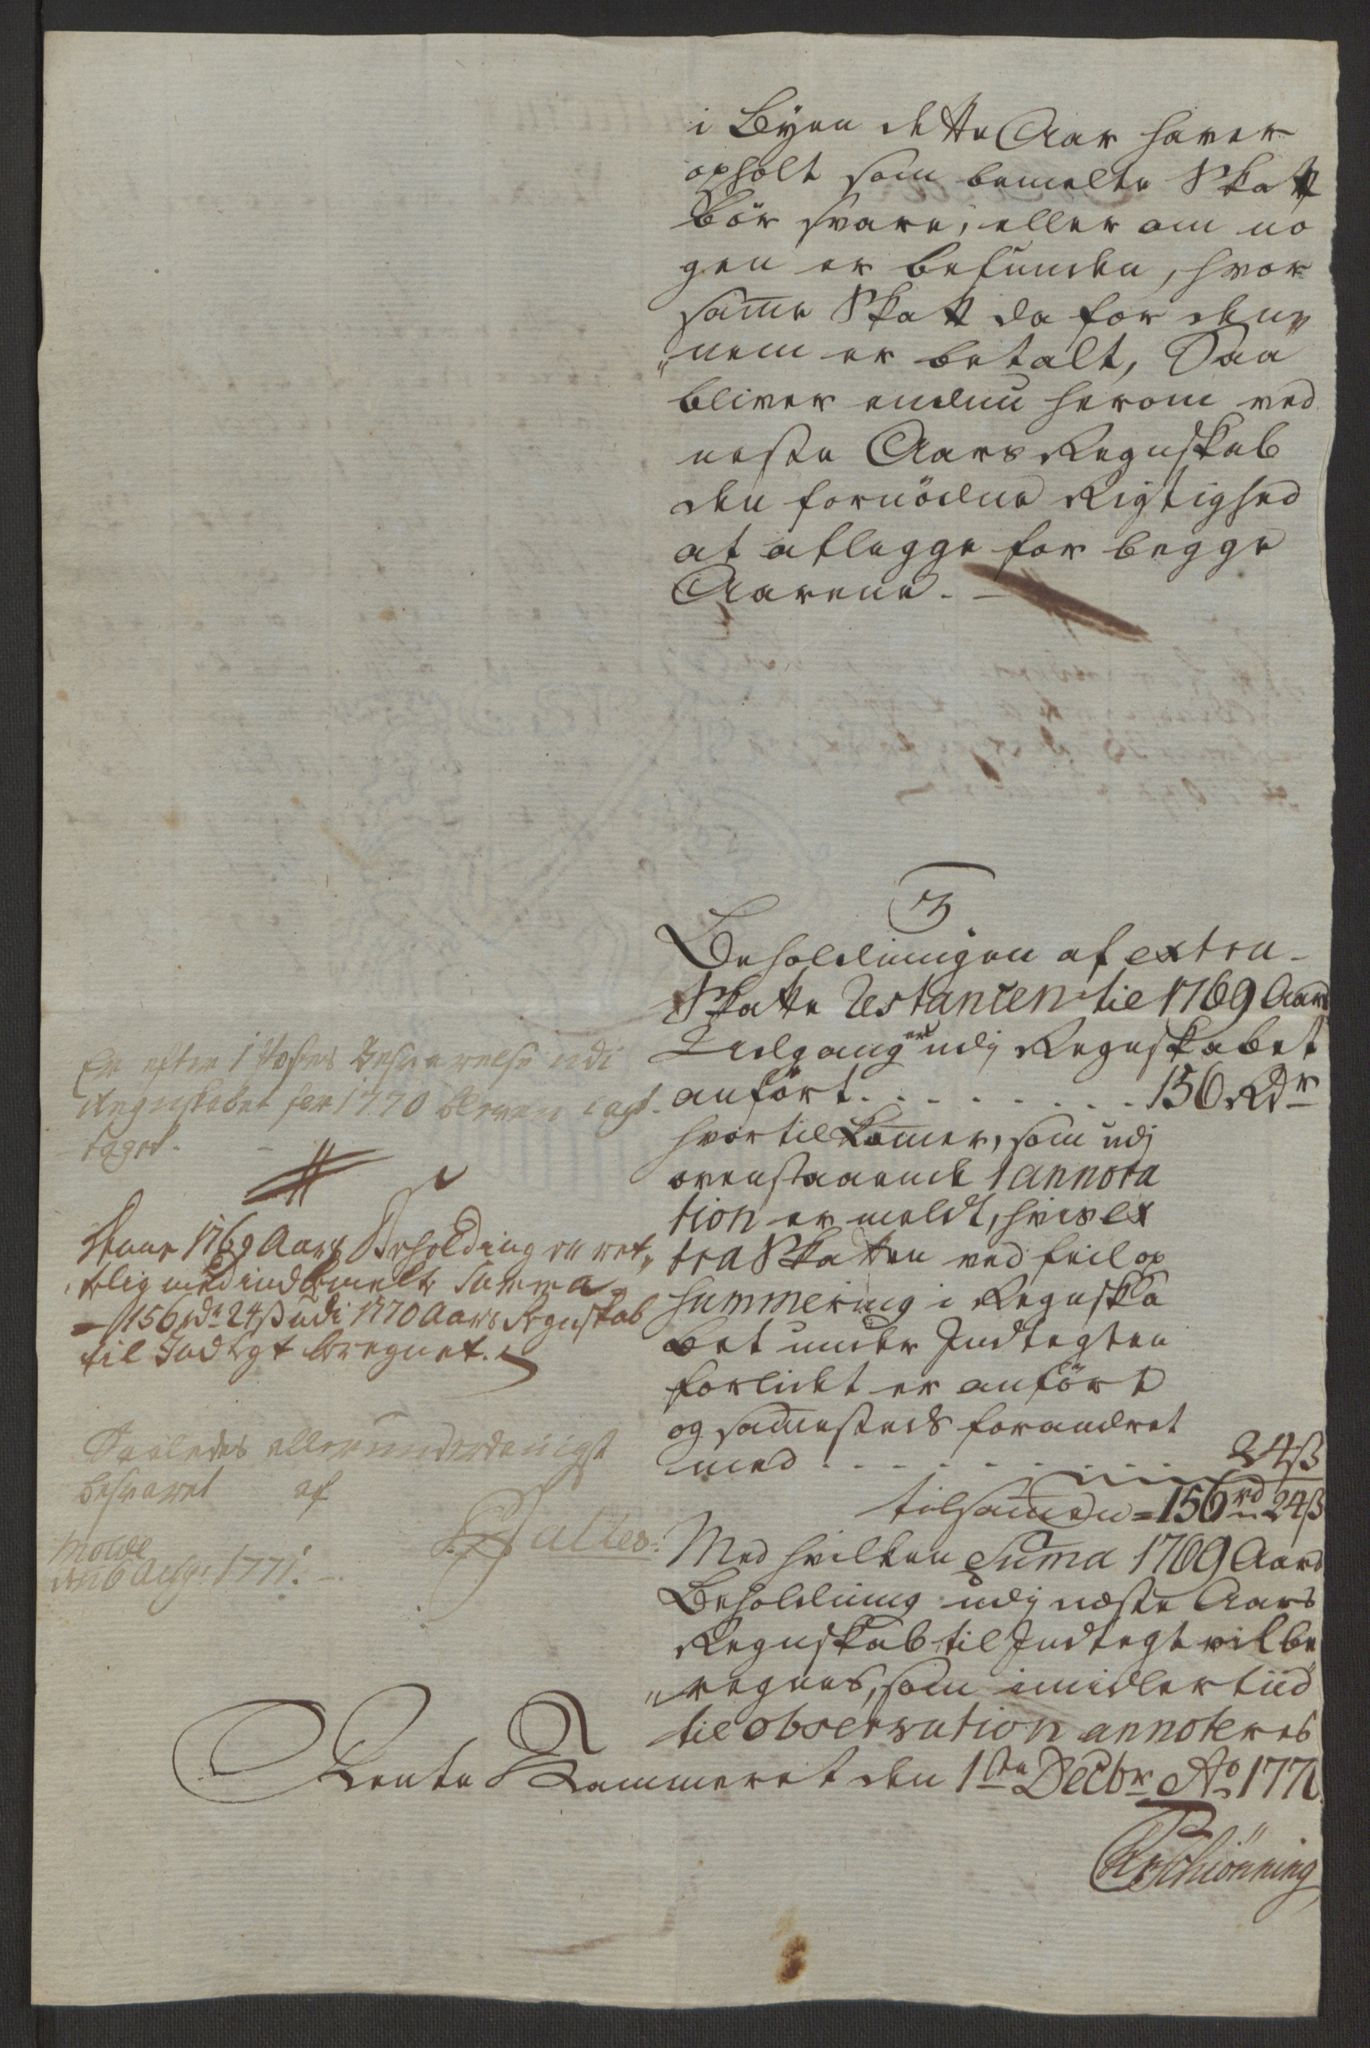 i Byen dette Aar haver
opholt som bemelte Skatt
bør svare, eller om no
gen er befunden, hvor
samme Skatt da for den„
„nem er betalt, Saa
bliver endnu herom ved
neste Aars Regnskab
den fornødne Rigtighed
at aflegge for begge
Aarene. -
3
Beholdningen af extra-
Skatte Restancen til 1769 Aars
Udgang er udj Regnskabet
anført . . . . . . . . . 156 Rdr
hvortil kommer, som udj
ovenstaaende 1 annota
tion er meldt, hvis ex
tra Skatten ved feil op
summering i Regnska
bet under Indtegten
forlidet er anført
og sammesteds forandret
med . . . . . . . . 24 ß
tilsammen = 156 rd 24 ß
Med hvilken Suma 1769 Aars
Beholdning udj næste Aars
Regnskab til Indtegt vil be
„regnes, som imidlertiid
til observation annoteres
Rente Kammeret den 1ste Decbr Ao 1770
Schiønning
Er efter 1 Posts Besvarelse udi
Regnskabet for 1770 bleven iagt-
taget. -
#
Staar 1769 Aars Beholding er ret„
„telig med indbemelte Summa
156 rdr 24 ß udi 1770 Aars Regnskab
til Indtegt beregnet.
Saaledes allerunderdanigst
besvaret af
Molde
den 6 Augs: 1771.